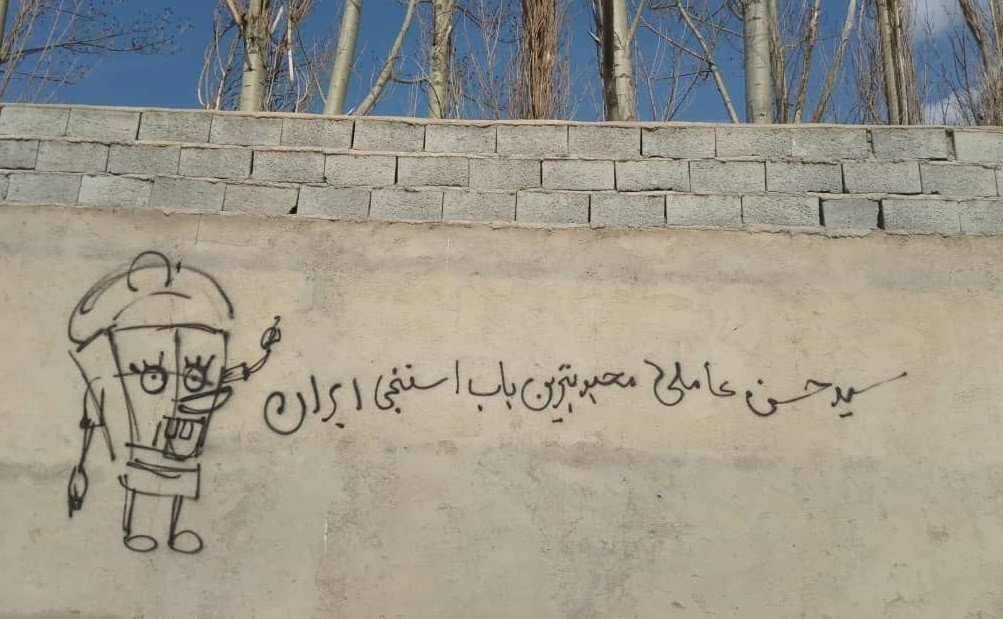 سید حسن عاملی محبوبترین باب اسفنجی ایران